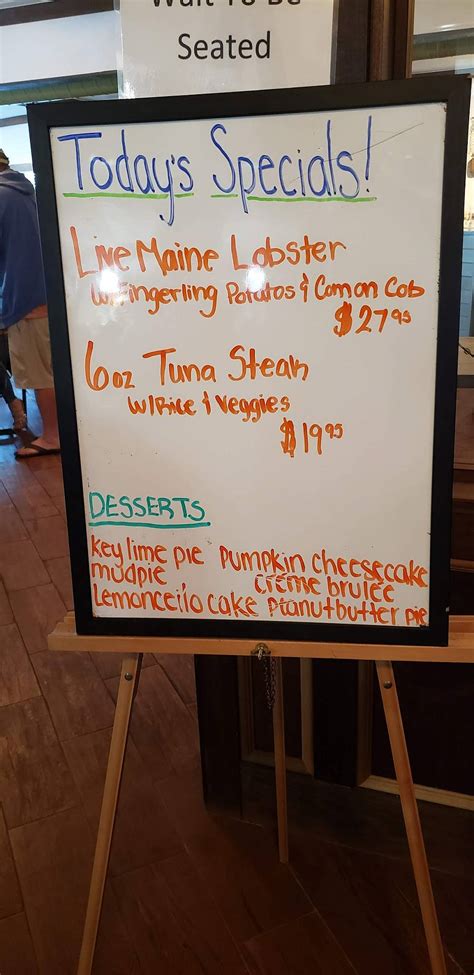 Wait To Be
Seated
Today's Specials!
Live Maine Lobster
w/Fingerling Potatos & Corn on Cob
$27.95
6oz Tuna Steak
w/Rice & Veggies
$19.95
DESSERTS
key lime pie pumpkin cheesecake
mudpie créme brulée
Lemoncello cake peanutbutter pie